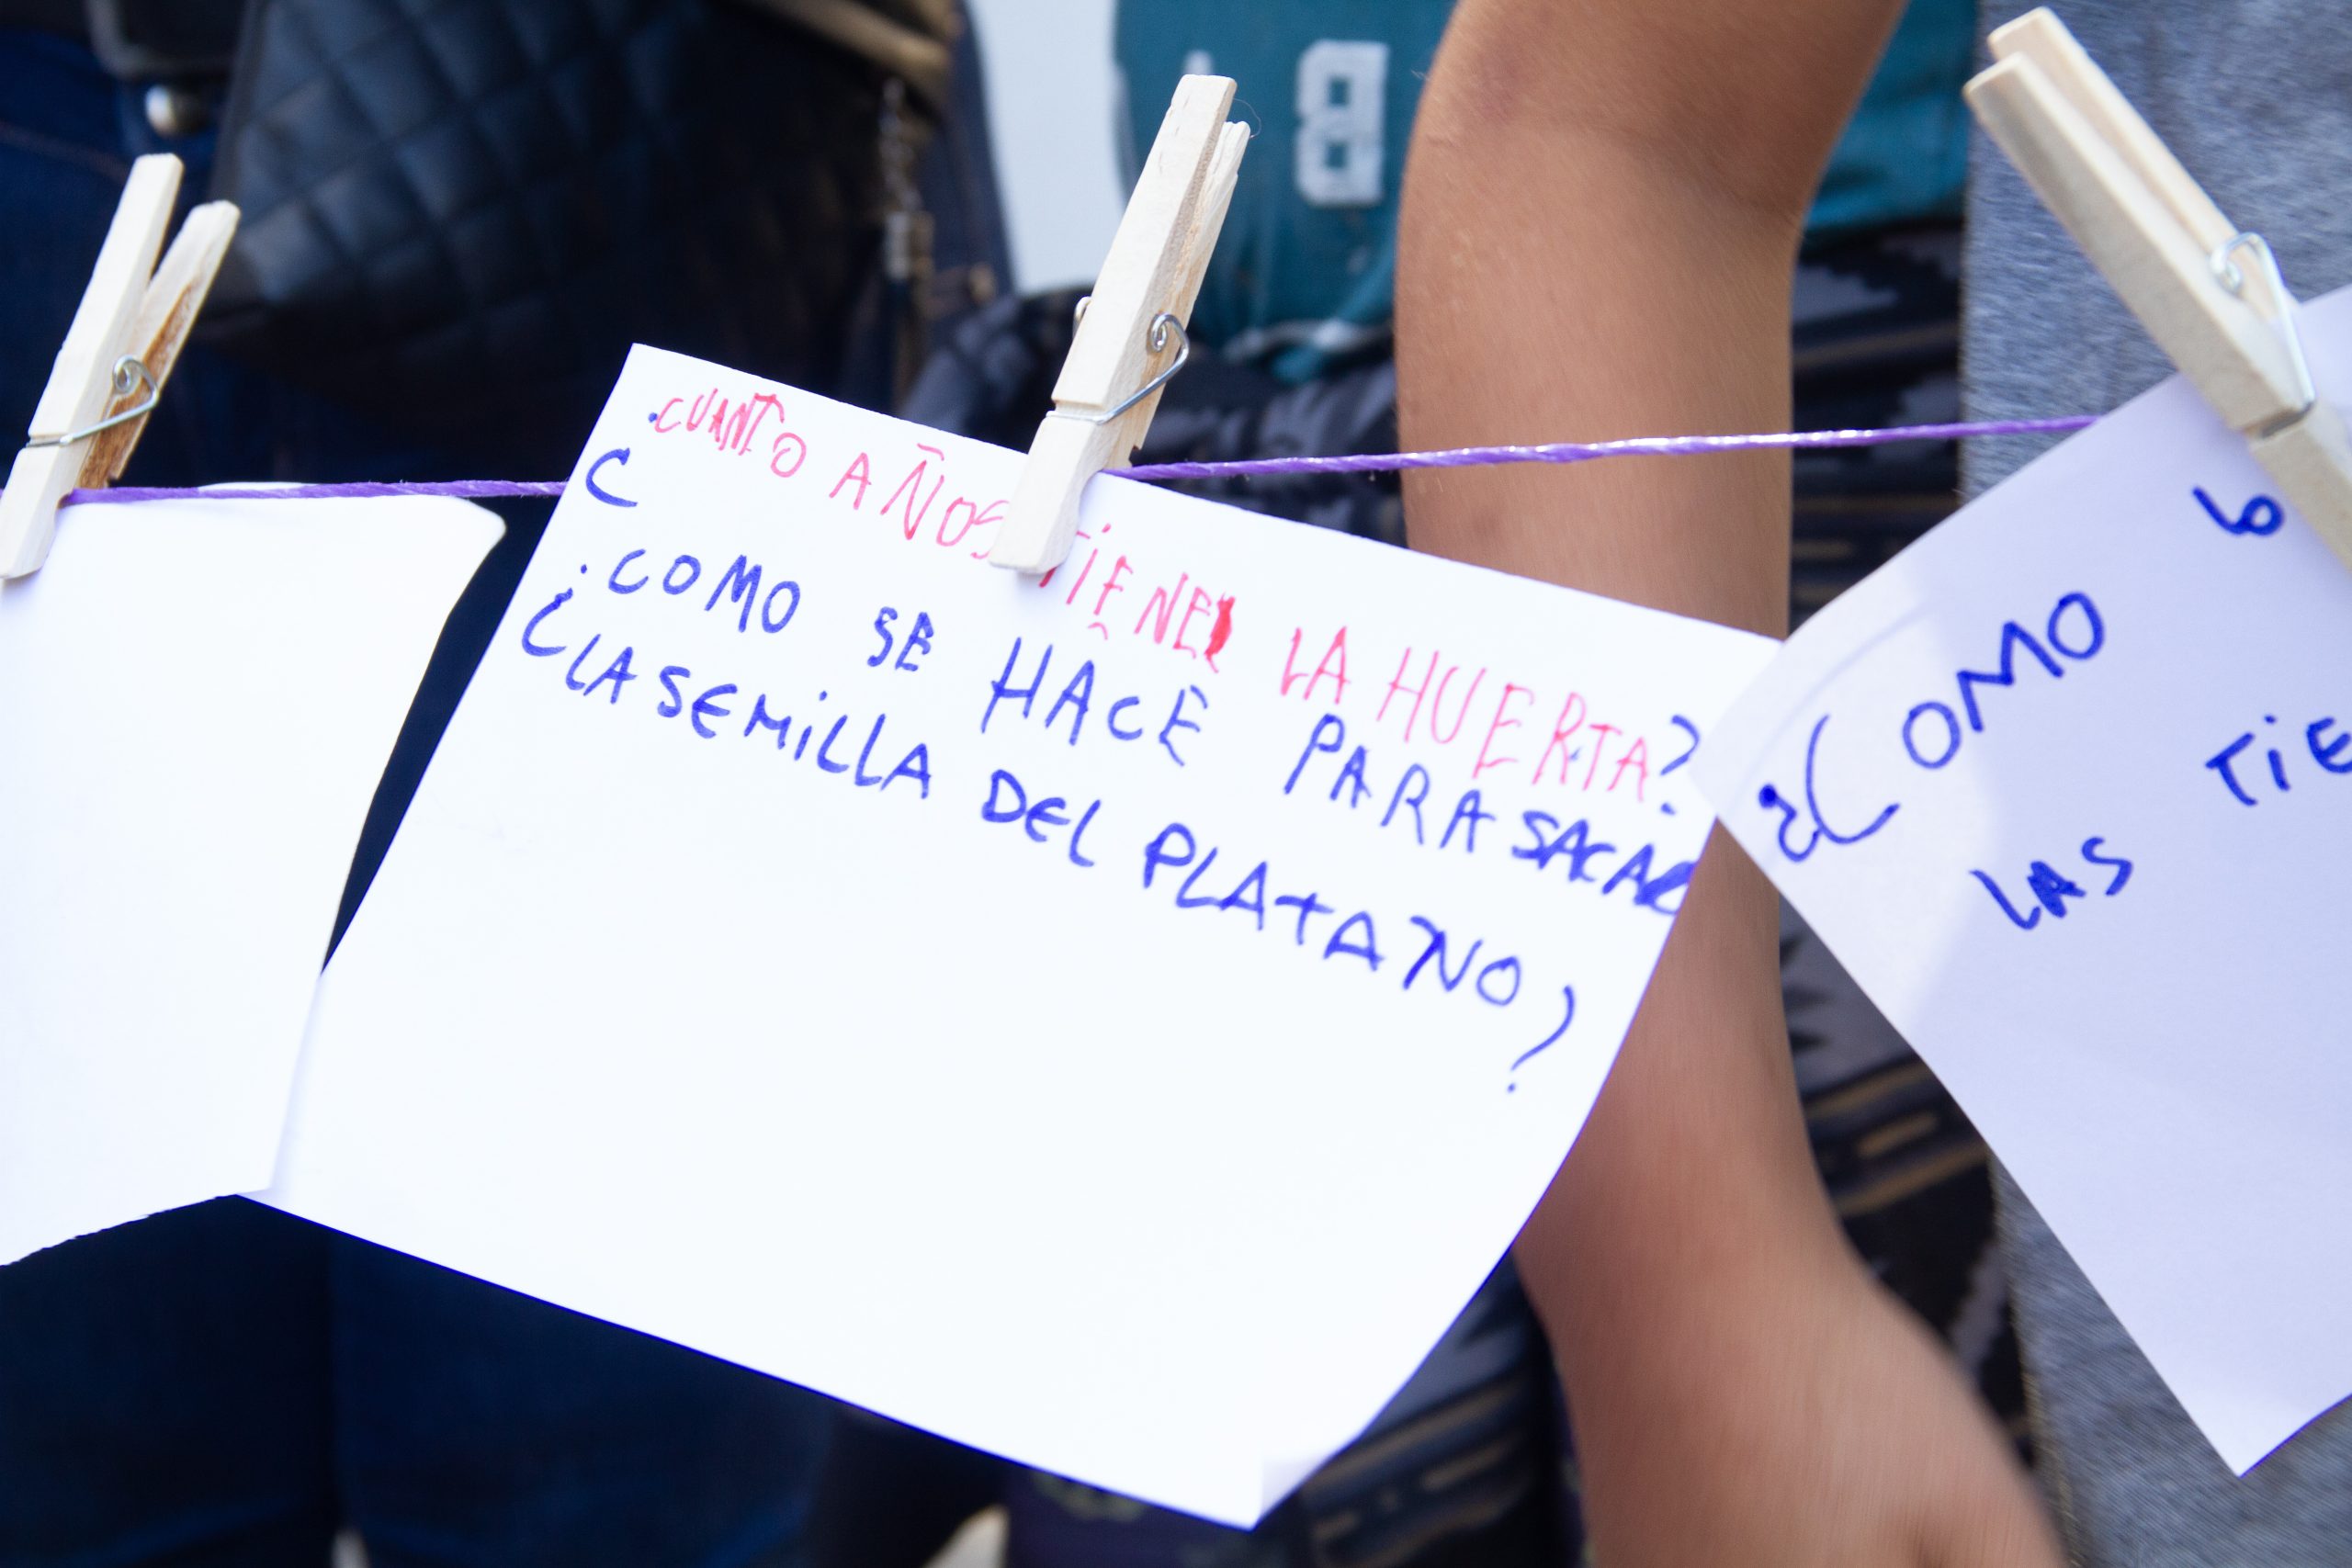 ¿CUANTO AÑOS TIENE LA HUERTA?
¿COMO SE HACE PARA SACAR
LA SEMILLA DEL PLATANO?
6
¿COMO
TIE
LAS
B